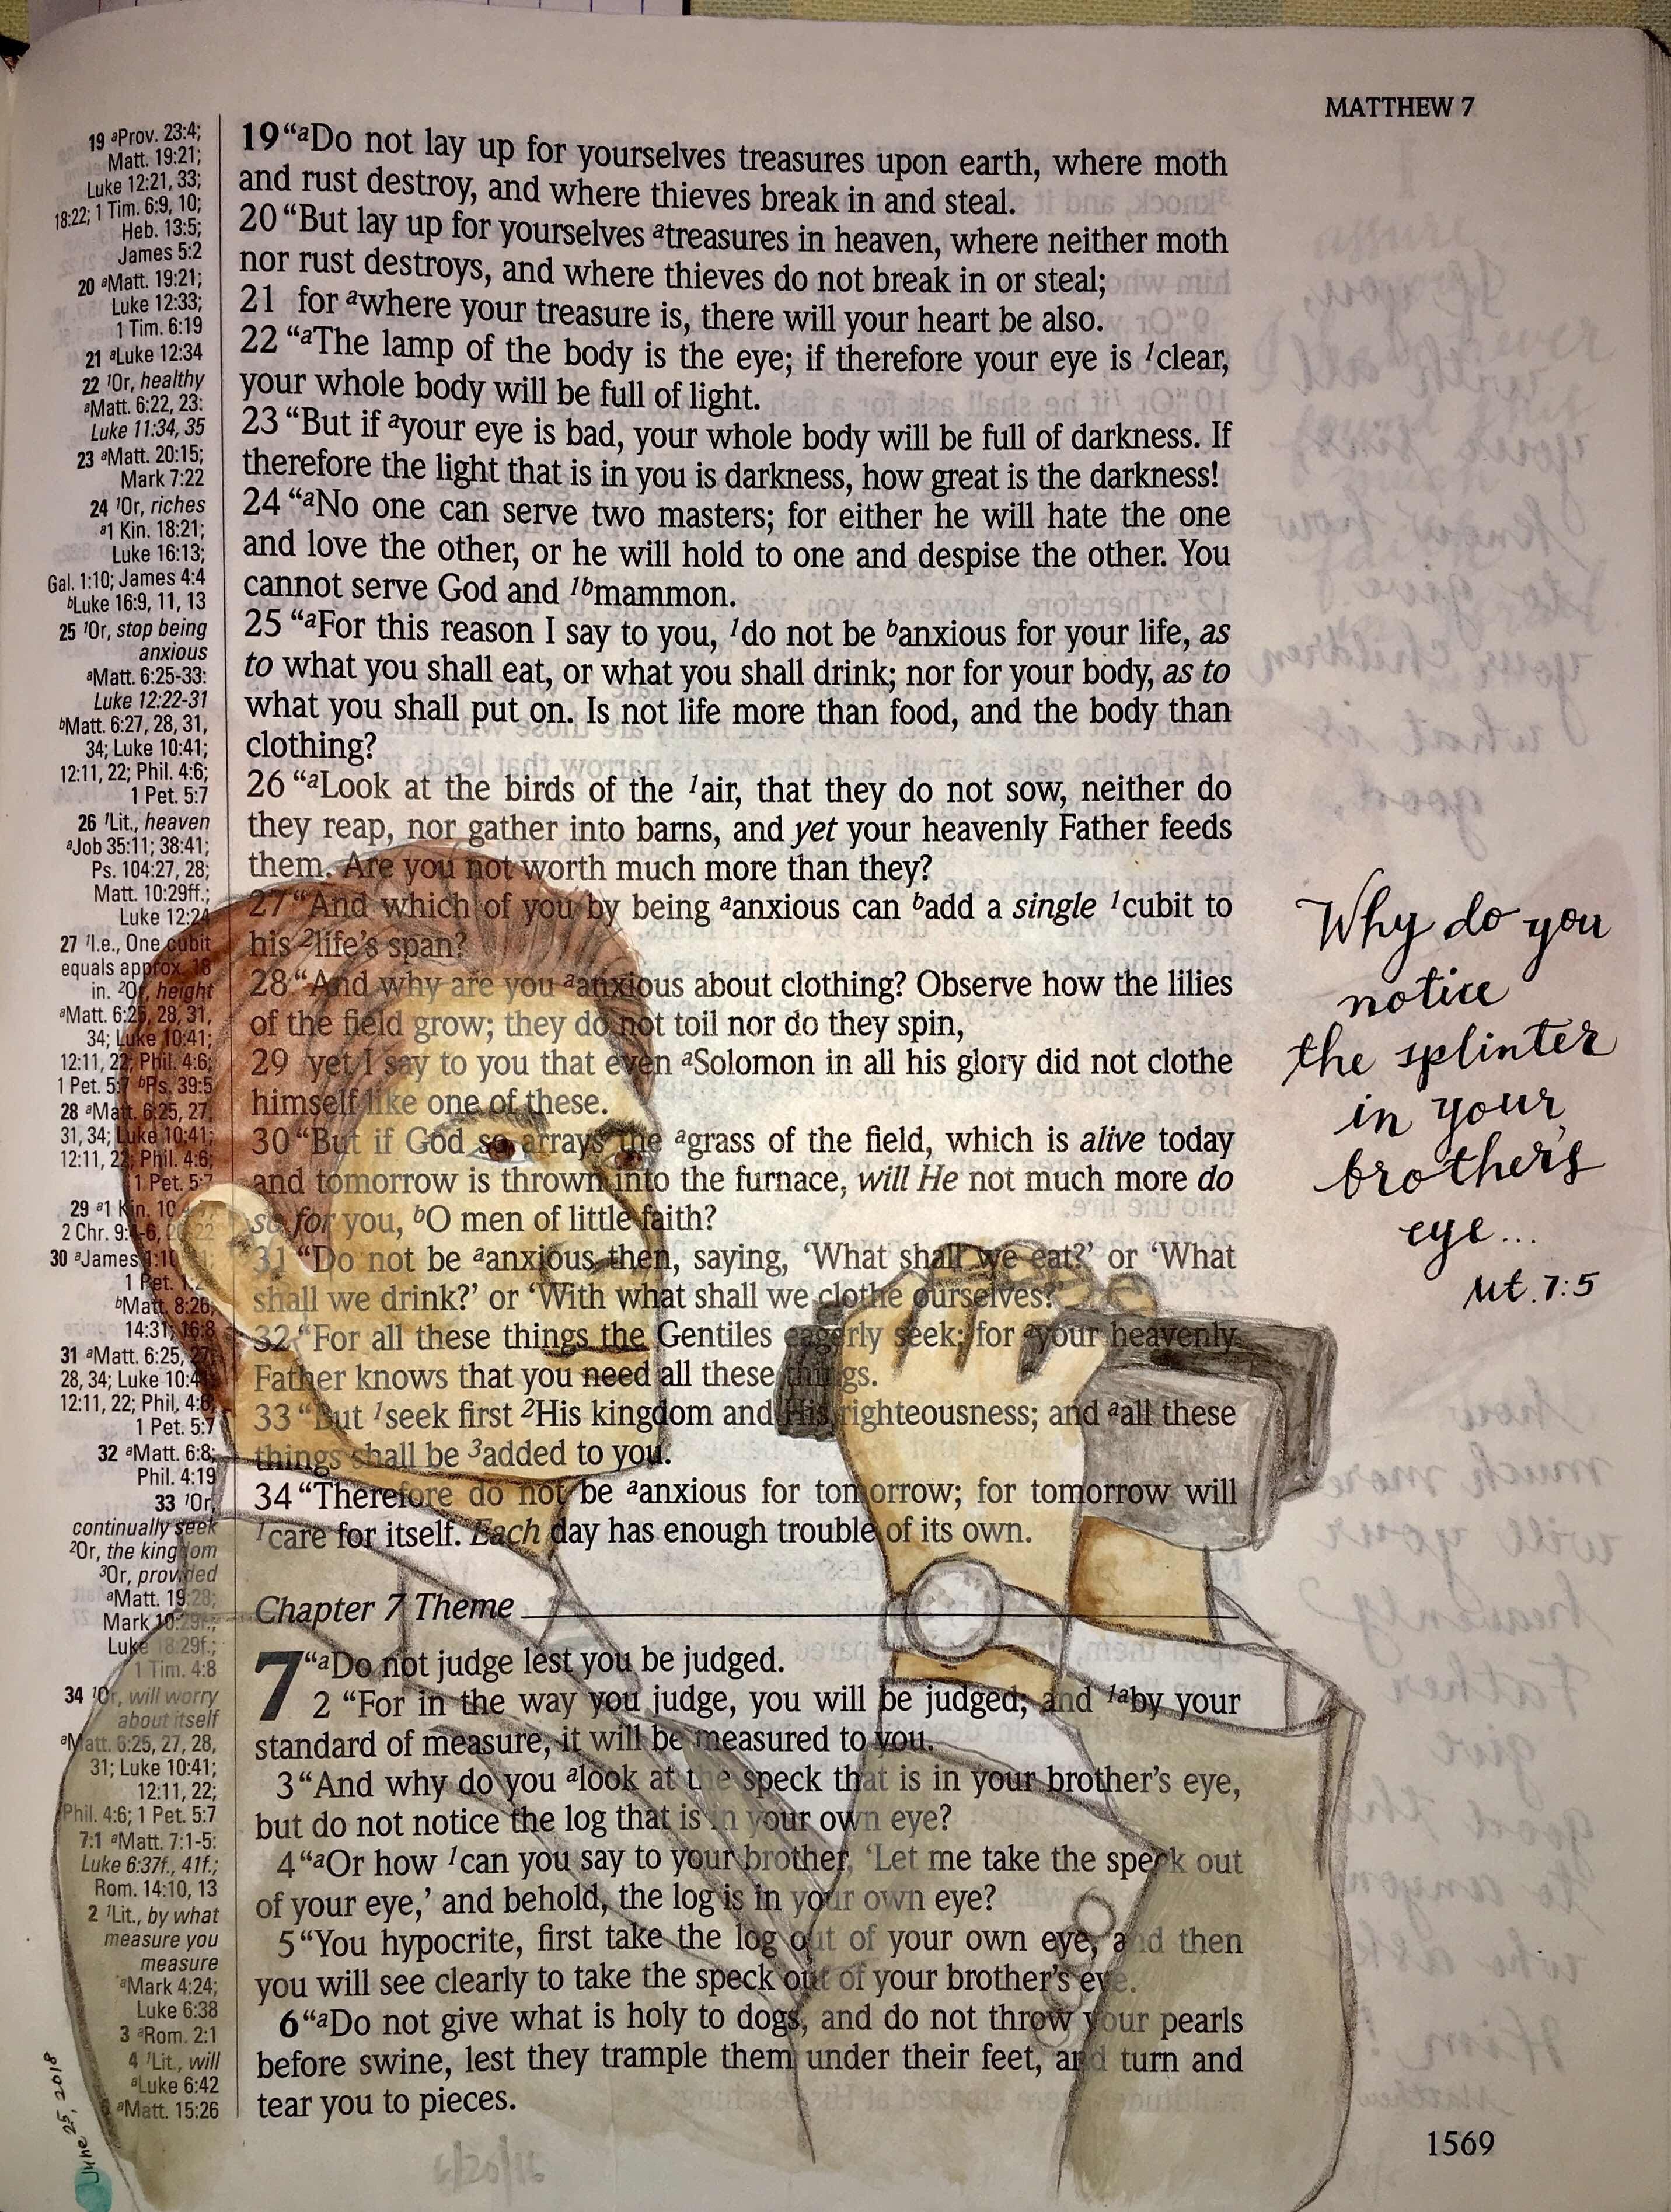 MATTHEW 7
19 aProv. 23:4;
Matt. 19:21;
Luke 12:21, 33;
18:22; 1 Tim. 6:9, 10;
Heb. 13:5;
James 5:2
20 aMatt. 19:21;
Luke 12:33;
1 Tim. 6:19
21 aLuke 12:34
22 1Or, healthy
aMatt. 6:22, 23:
Luke 11:34, 35
23 aMatt. 20:15;
Mark 7:22
24 1Or, riches
a1 Kin. 18:21;
Luke 16:13;
Gal. 1:10; James 4:4
bLuke 16:9, 11, 13
25 1Or, stop being
anxious
aMatt. 6:25-33:
Luke 12:22-31
bMatt. 6:27, 28, 31,
34; Luke 10:41;
12:11, 22; Phil. 4:6;
1 Pet. 5:7
26 1Lit., heaven
aJob 35:11; 38:41;
Ps. 104:27, 28;
Matt. 10:29ff.;
Luke 12:24
27 1I.e., One cubit
equals approx. 18
in. 2Or, height
aMatt. 6:25, 28, 31,
34; Luke 10:41;
12:11, 22; Phil. 4:6;
1 Pet. 5:7 bPs. 39:5
28 aMatt. 6:25, 27,
31, 34; Luke 10:41;
12:11, 22; Phil. 4:6;
1 Pet. 5:7
29 a1 Kin. 10
2 Chr. 9:
30 aJames 1:10
1 Pet. 1:24
bMatt. 8:26;
14:31; 16:8
31 aMatt. 6:25, 27,
28, 34; Luke 10:41;
12:11, 22; Phil. 4:6;
1 Pet. 5:7
32 aMatt. 6:8;
Phil. 4:19
33 1Or,
continually seek
2Or, the kingdom
3Or, provided
aMatt. 19:28;
Mark 10:29f.;
Luke 18:29f.;
1 Tim. 4:8
34 1Or, will worry
about itself
aMatt. 6:25, 27, 28,
31; Luke 10:41;
12:11, 22;
Phil. 4:6; 1 Pet. 5:7
7:1 aMatt. 7:1-5:
Luke 6:37f., 41f.;
Rom. 14:10, 13
2 1Lit., by what
measure you
measure
aMark 4:24;
Luke 6:38
3 aRom. 2:1
4 1Lit., will
aLuke 6:42
6 aMatt. 15:26
19 “aDo not lay up for yourselves treasures upon earth, where moth
and rust destroy, and where thieves break in and steal.
20 “But lay up for yourselves atreasures in heaven, where neither moth
nor rust destroys, and where thieves do not break in or steal;
21 for awhere your treasure is, there will your heart be also.
22 “aThe lamp of the body is the eye; if therefore your eye is 1clear,
your whole body will be full of light.
23 “But if ayour eye is bad, your whole body will be full of darkness. If
therefore the light that is in you is darkness, how great is the darkness!
24 “aNo one can serve two masters; for either he will hate the one
and love the other, or he will hold to one and despise the other. You
cannot serve God and 1bmammon.
25 “aFor this reason I say to you, 1do not be banxious for your life, as
to what you shall eat, or what you shall drink; nor for your body, as to
what you shall put on. Is not life more than food, and the body than
clothing?
26 “aLook at the birds of the 1air, that they do not sow, neither do
they reap, nor gather into barns, and yet your heavenly Father feeds
them. Are you not worth much more than they?
27 “And which of you by being aanxious can badd a single 1cubit to
his 2life’s span?
28 “And why are you aanxious about clothing? Observe how the lilies
of the field grow; they do not toil nor do they spin,
29 yet I say to you that even aSolomon in all his glory did not clothe
himself like one of these.
30 “But if God so arrays the agrass of the field, which is alive today
and tomorrow is thrown into the furnace, will He not much more do
so for you, bO men of little faith?
31 “Do not be aanxious then, saying, ‘What shall we eat?’ or ‘What
shall we drink?’ or ‘With what shall we clothe ourselves?’
32 “For all these things the Gentiles eagerly seek; for ayour heavenly
Father knows that you need all these things.
33 “But 1seek first 2His kingdom and His righteousness; and aall these
things shall be 3added to you.
34 “Therefore do not be aanxious for tomorrow; for tomorrow will
1care for itself. Each day has enough trouble of its own.
Chapter 7 Theme
7 “aDo not judge lest you be judged.
2 “For in the way you judge, you will be judged; and 1aby your
standard of measure, it will be measured to you.
3 “And why do you alook at the speck that is in your brother’s eye,
but do not notice the log that is in your own eye?
4 “aOr how 1can you say to your brother, ‘Let me take the speck out
of your eye,’ and behold, the log is in your own eye?
5 “You hypocrite, first take the log out of your own eye, and then
you will see clearly to take the speck out of your brother’s eye.
6 “aDo not give what is holy to dogs, and do not throw your pearls
before swine, lest they trample them under their feet, and turn and
tear you to pieces.
Why do you
notice
the splinter
in your
brother's
eye...
Mt. 7:5
June 25, 2018
1569